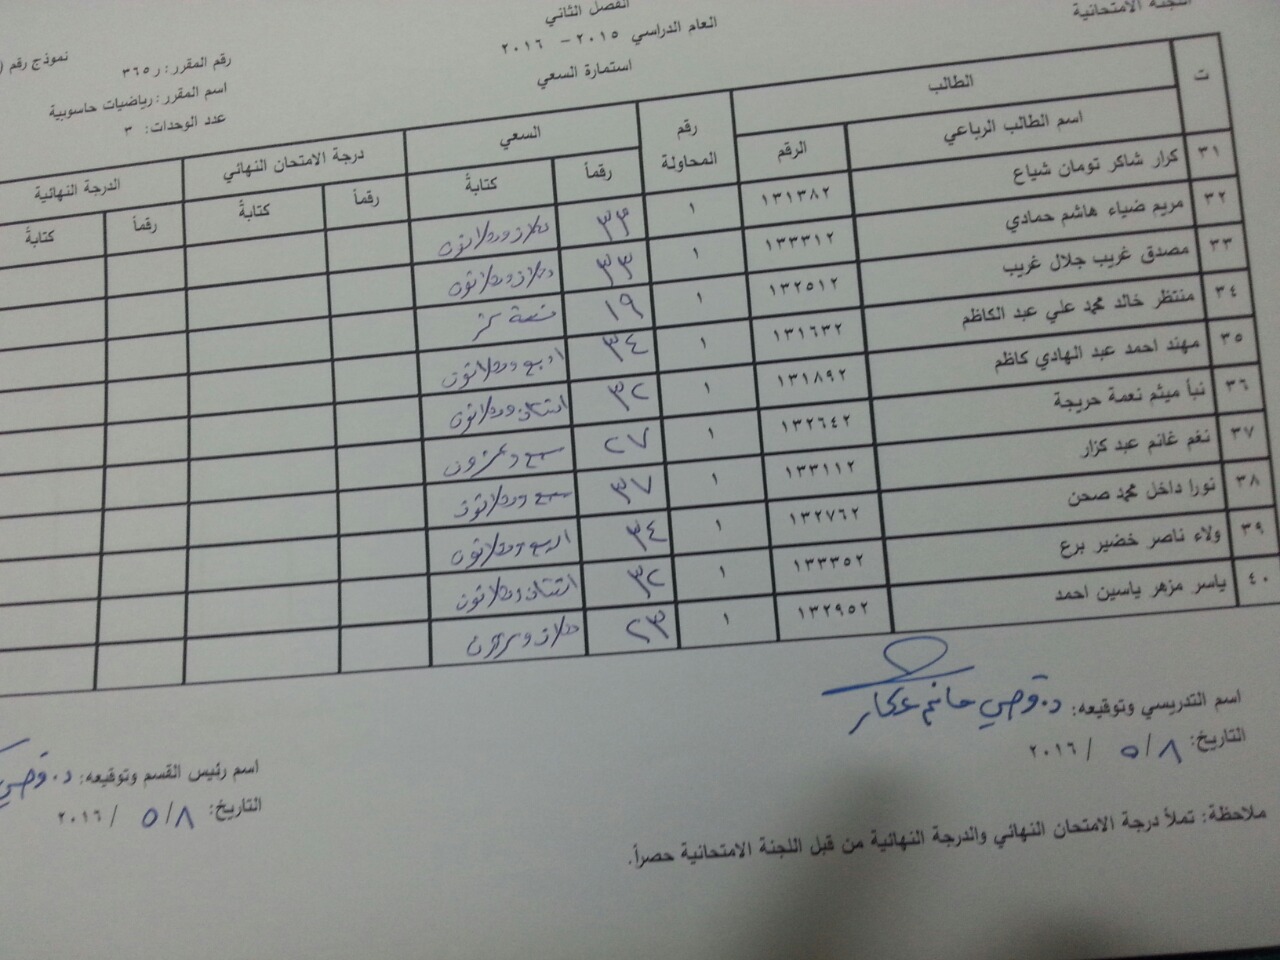 اللجنة الامتحانية
الفصل الثاني
العام الدراسي ٢٠١٥ - ٢٠١٦
استمارة السعي
نموذج رقم (
رقم المقرر: ر ٣٦٥
اسم المقرر: رياضيات حاسوبية
عدد الوحدات: ٣
ت الطالب رقم المحاولة السعي درجة الامتحان النهائي الدرجة النهائية
اسم الطالب الرباعي الرقم رقماً كتابةً رقماً كتابةً رقماً كتابةً
٣١ كرار شاكر تومان شياع ١٣١٣٨٢ ١ ٣٣ ثلاث وثلاثون
٣٢ مريم ضياء هاشم حمادي ١٣٣٣١٢ ١ ٣٣ ثلاث وثلاثون
٣٣ مصدق غريب جلال غريب ١٣٢٥١٢ ١ ١٩ تسعة عشر
٣٤ منتظر خالد محمد علي عبد الكاظم ١٣١٦٣٢ ١ ٣٤ اربع وثلاثون
٣٥ مهند احمد عبد الهادي كاظم ١٣١٨٩٢ ١ ٣٢ اثنتان وثلاثون
٣٦ نبأ ميثم نعمة حريجة ١٣٢٦٤٢ ١ ٢٧ سبع وعشرون
٣٧ نغم غانم عبد كزار ١٣٣١١٢ ١ ٣٧ سبع وثلاثون
٣٨ نورا داخل محمد صحن ١٣٢٧٦٢ ١ ٣٤ اربع وثلاثون
٣٩ ولاء ناصر خضير برع ١٣٣٣٥٢ ١ ٣٢ اثنتان وثلاثون
٤٠ ياسر مزهر ياسين احمد ١٣٢٩٥٢ ١ ٢٣ ثلاث وعشرون
اسم التدريسي وتوقيعه: د. قصي حاتم عكار
التاريخ: ٥/٨ / ٢٠١٦
اسم رئيس القسم وتوقيعه: د. قصي
التاريخ: ٥/٨ / ٢٠١٦
ملاحظة: تملأ درجة الامتحان النهائي والدرجة النهائية من قبل اللجنة الامتحانية حصراً.